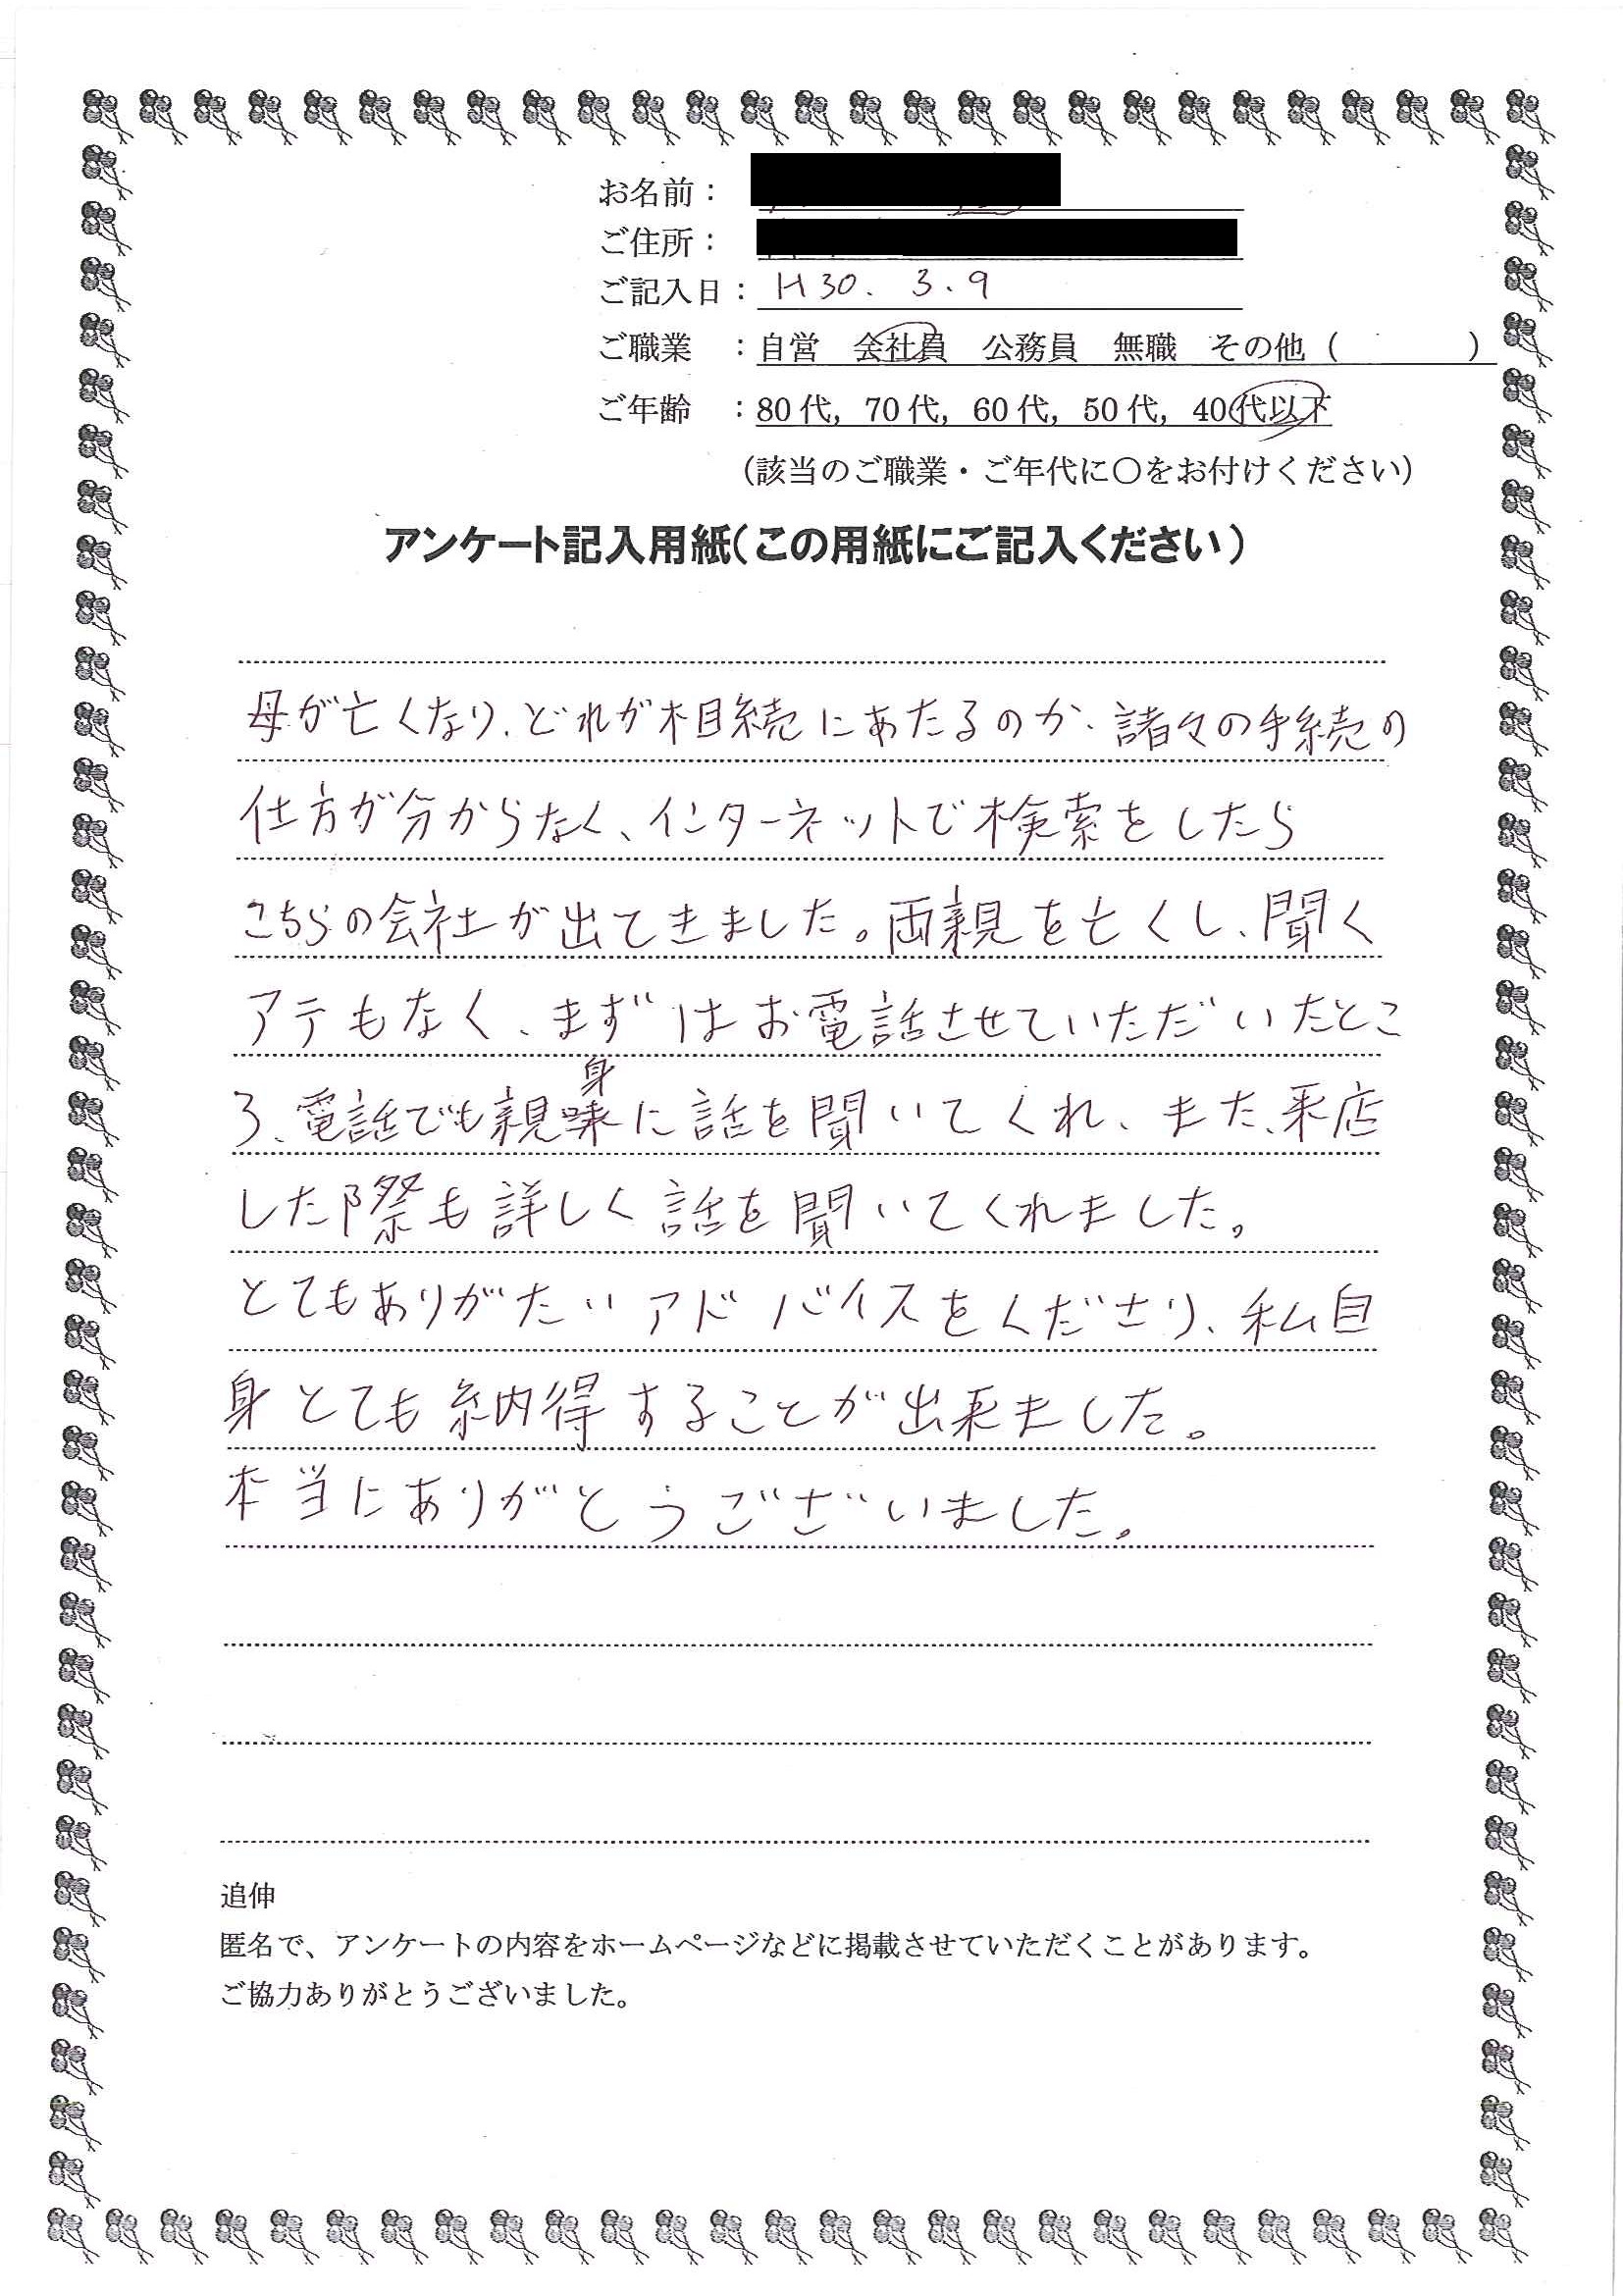 お名前：
ご住所：
ご記入日： H30. 3. 9
ご職業 ：自営 会社員 公務員 無職 その他（ ）
ご年齢 ：80代，70代，60代，50代，40代以下
（該当のご職業・ご年代に〇をお付けください）
アンケート記入用紙（この用紙にご記入ください）
母が亡くなり、どれが相続にあたるのか、諸々の手続の
仕方が分からなく、インターネットで検索をしたら
こちらの会社が出てきました。両親を亡くし、聞く
アテもなく、まずはお電話させていただいたとこ
身
ろ、電話でも親味に話を聞いてくれ、また、来店
した際も詳しく話を聞いてくれました。
とてもありがたいアドバイスをくださり、私自
身とても納得することが出来ました。
本当にありがとうございました。
追伸
匿名で、アンケートの内容をホームページなどに掲載させていただくことがあります。
ご協力ありがとうございました。